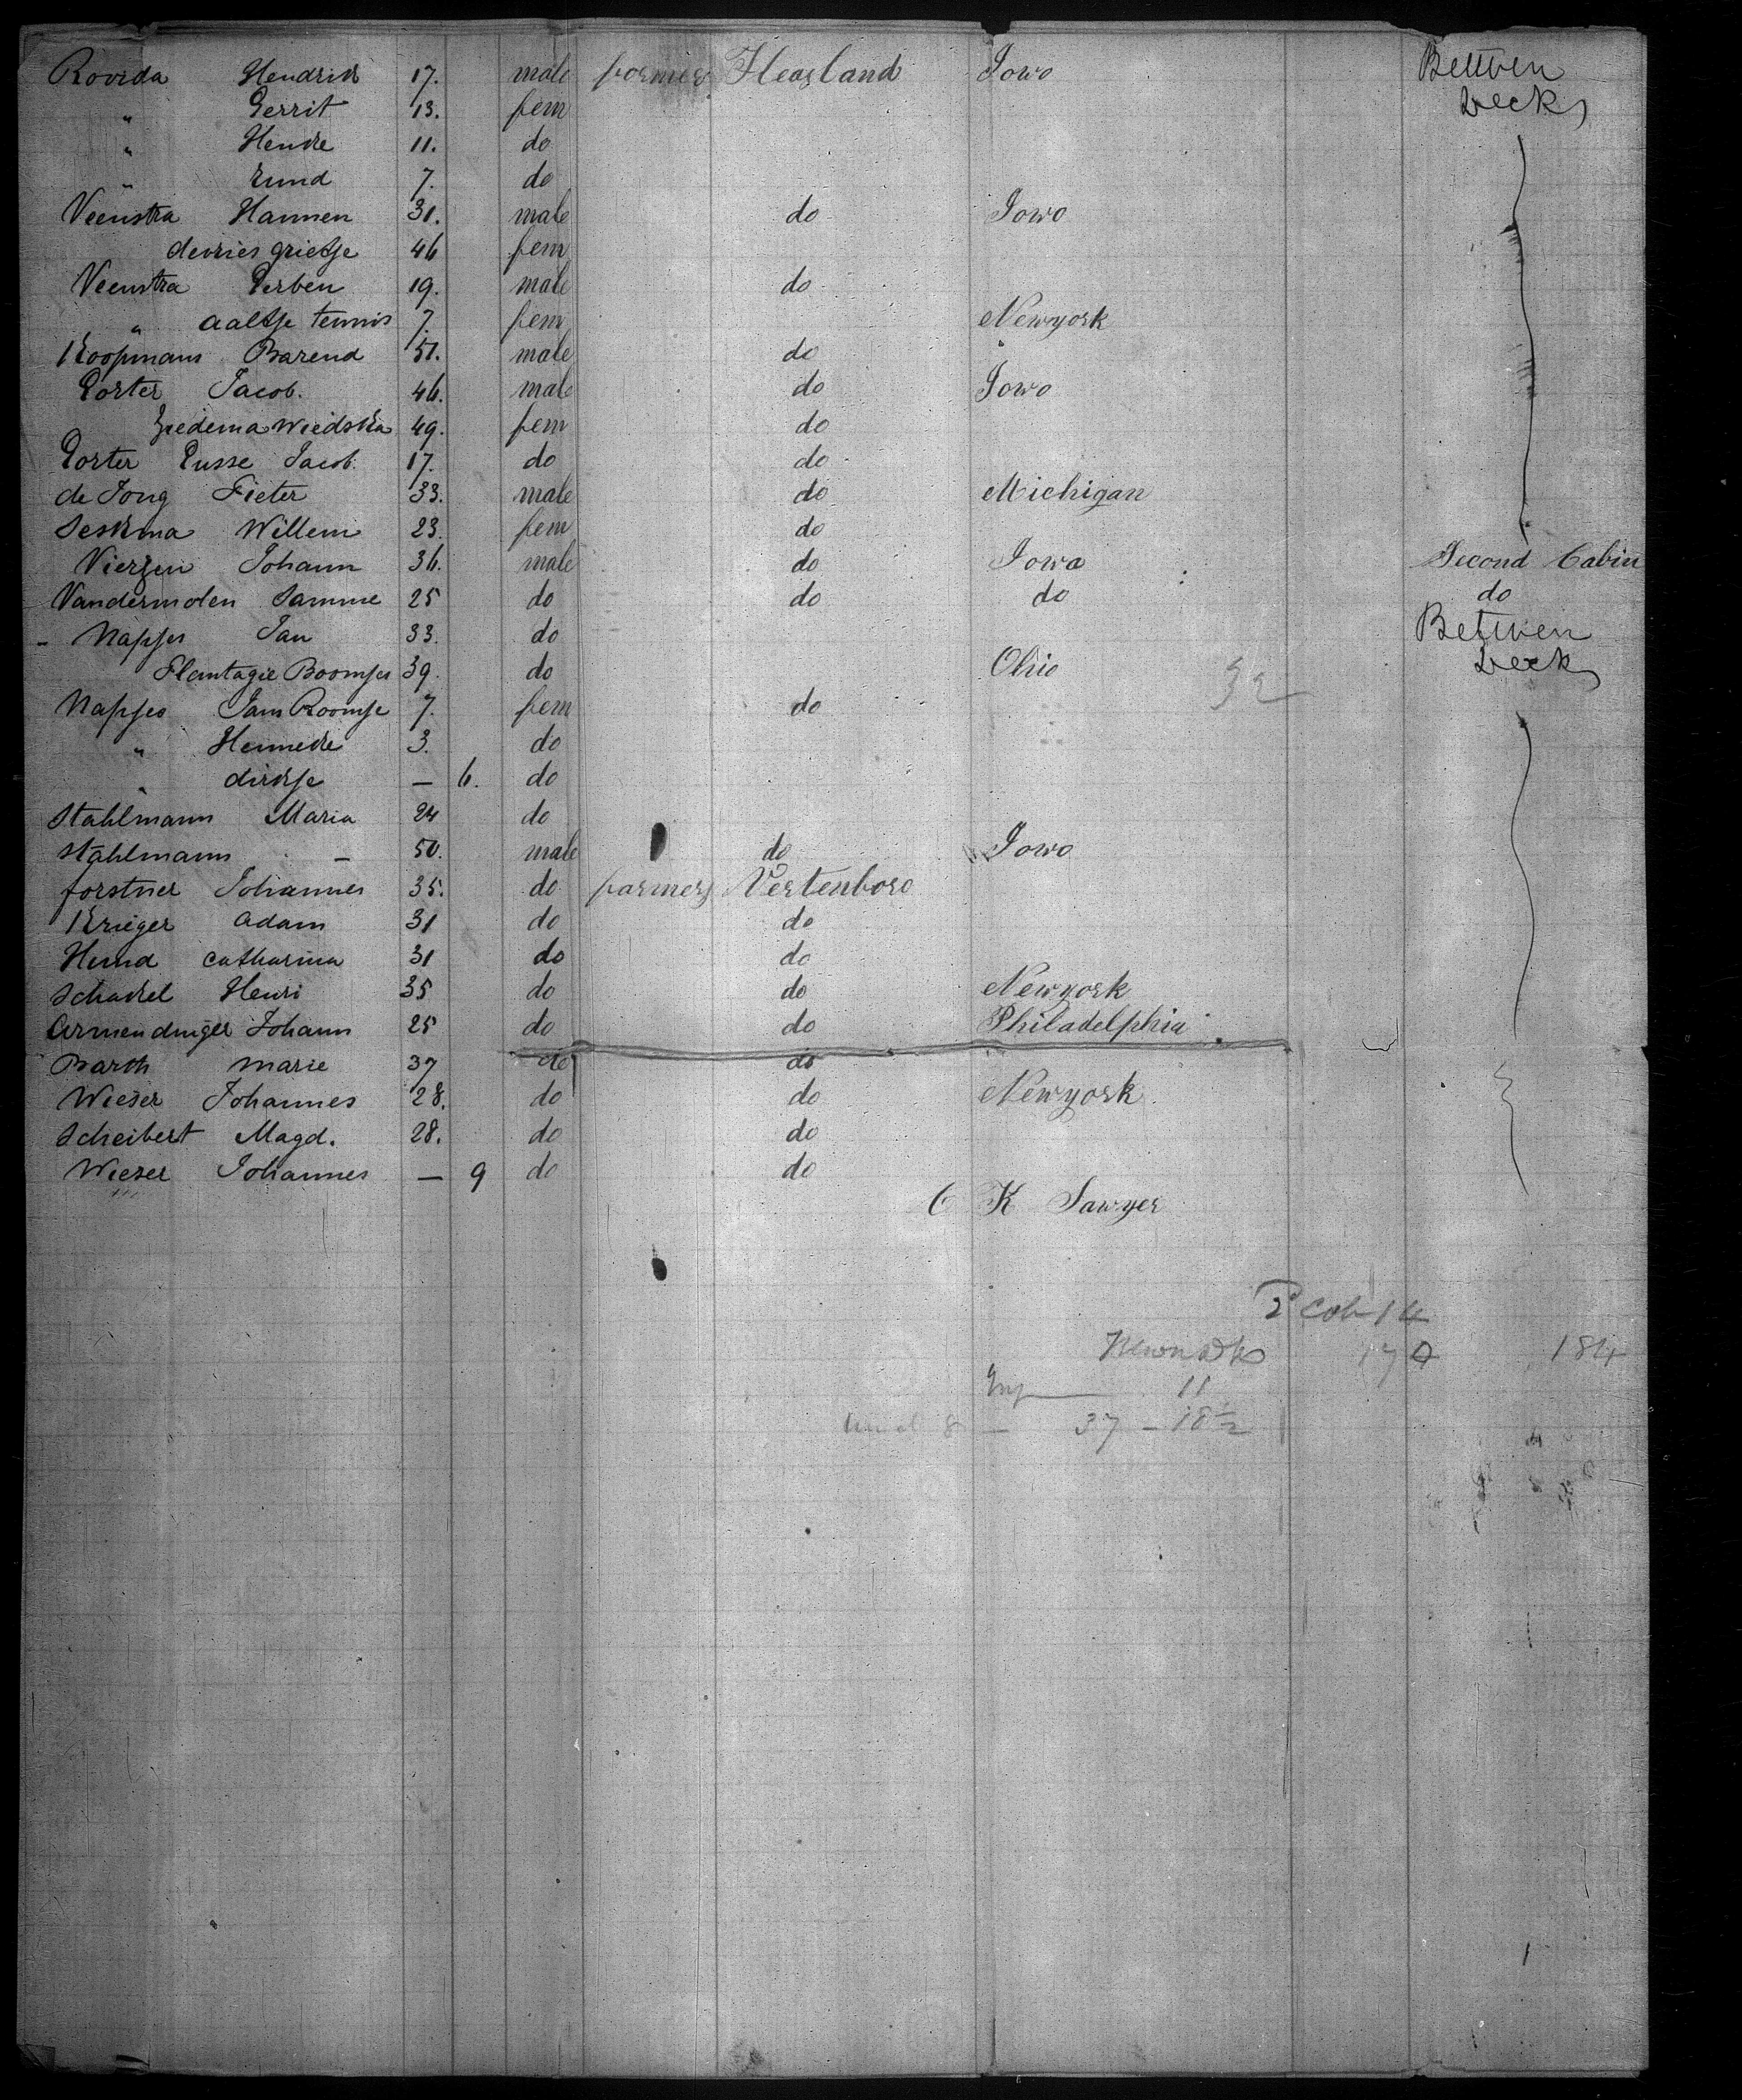 Roorda Hendrik 17. male farmer Heagland Iowo Bettwen Deck
" Gerrit 13. fem
" Henke 11. do
" 7. do
Veenstra Hannen 31. male do Iowo
devries grietje 46 fem
Veenstra Gerben 19. male do
" aaltje tennis 7. fem Newyork
Koopmans Barend 51. male do
Porter Jacob. 46. male do Iowo
Wiedska 49. fem do
Porter Pusse Jacob. 17. do do
de Jong Pieter 33. male do Michigan
Seskma Willem 23. fem do
Vierzen Johann 36. male do Iowa Second Cabin
Vandermolen Samme 25 do do do do
- Napjes Jan 33. do Bettwen Deck
Plantagie Boomjes 39. do Ohio
Napjes Jam Roomje 7. fem do
" Henneke 3. do
" dirkje — 6. do
Stahlmann Maria 24 do
Stahlmann — 50. male do Iowo
forstner Johannes 35. do farmers Vertenboro
Krieger Adam 31 do do
Hund catharina 31 do do
Schackel Henri 35 do do Newyork
Armendinger Johann 25 do do Philadelphia
Barth marie 37 do do
Wieser Johannes 28. do do Newyork
Scheibert Magd. 28. do do
Wieser Johannes — 9 do do
C K Sawyer
2 Cab 14
170 184
Inf — 11
37 – 18½